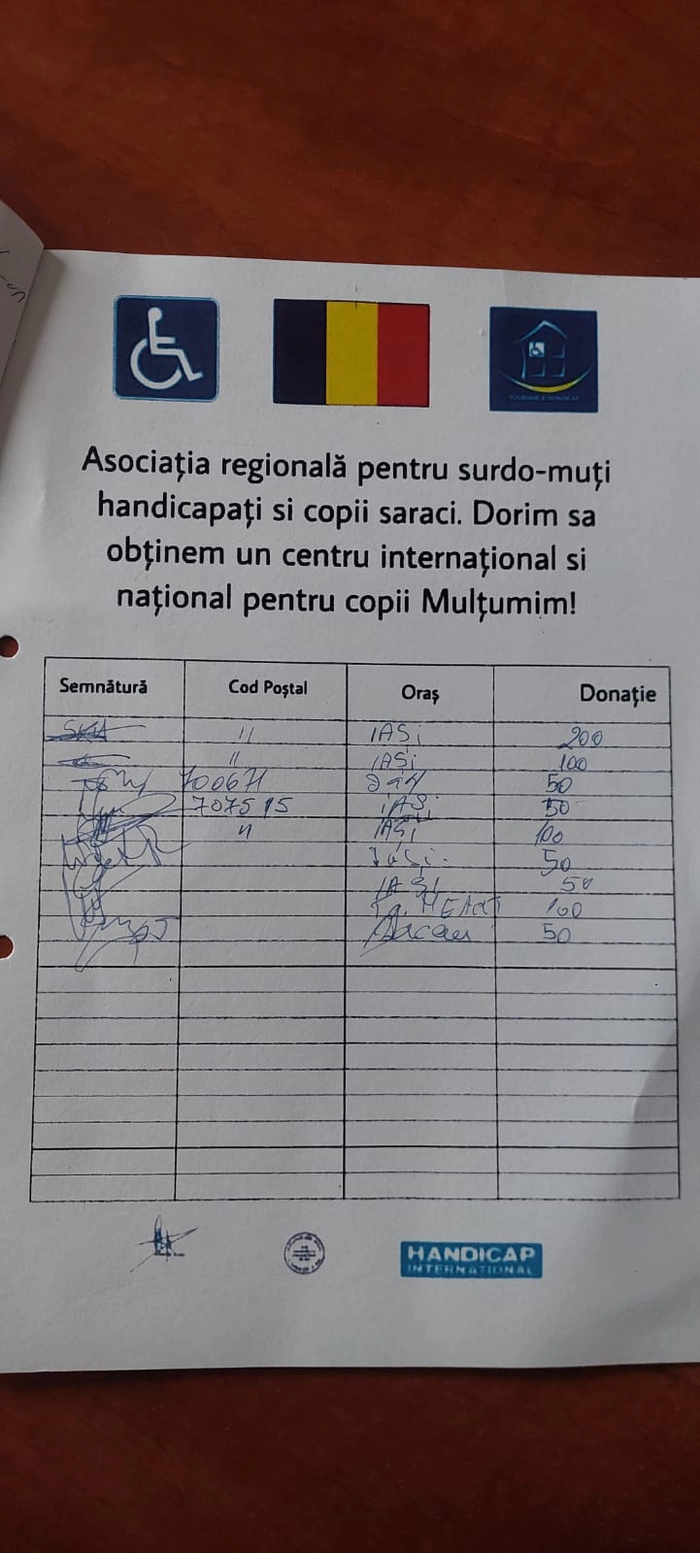 Asociația regională pentru surdo-muți
handicapați si copii saraci. Dorim sa
obținem un centru internațional si
național pentru copii Mulțumim!
Semnătură Cod Poștal Oraș Donație
" IAȘi 200
" IAȘi 100
700671 50
707515 IAȘi 50
" IAȘi 100
Iași. 50
IAȘI 50
100
50
HANDICAP
INTERNATIONAL